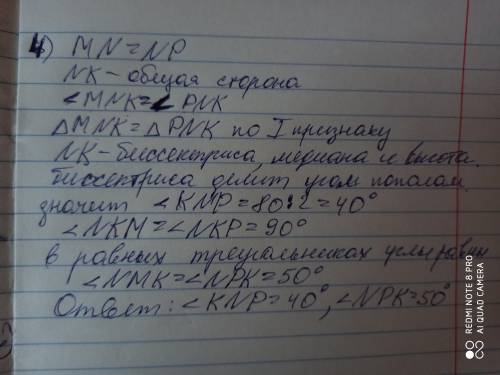 4) MN=NP
NK-общая сторона
∠MNK=∠PNK
△MNK=△PNK по I признаку
NK-биссектриса, медиана и высота.
биссектриса делит угол пополам,
значит ∠KNP=80:2=40°
∠NKM=∠NKP=90°
в равных треугольниках углы равны
∠NMK=∠NPK=50°
Ответ: ∠KNP=40°, ∠NPK=50°
REDMI NOTE 8 PRO
AI QUAD CAMERA